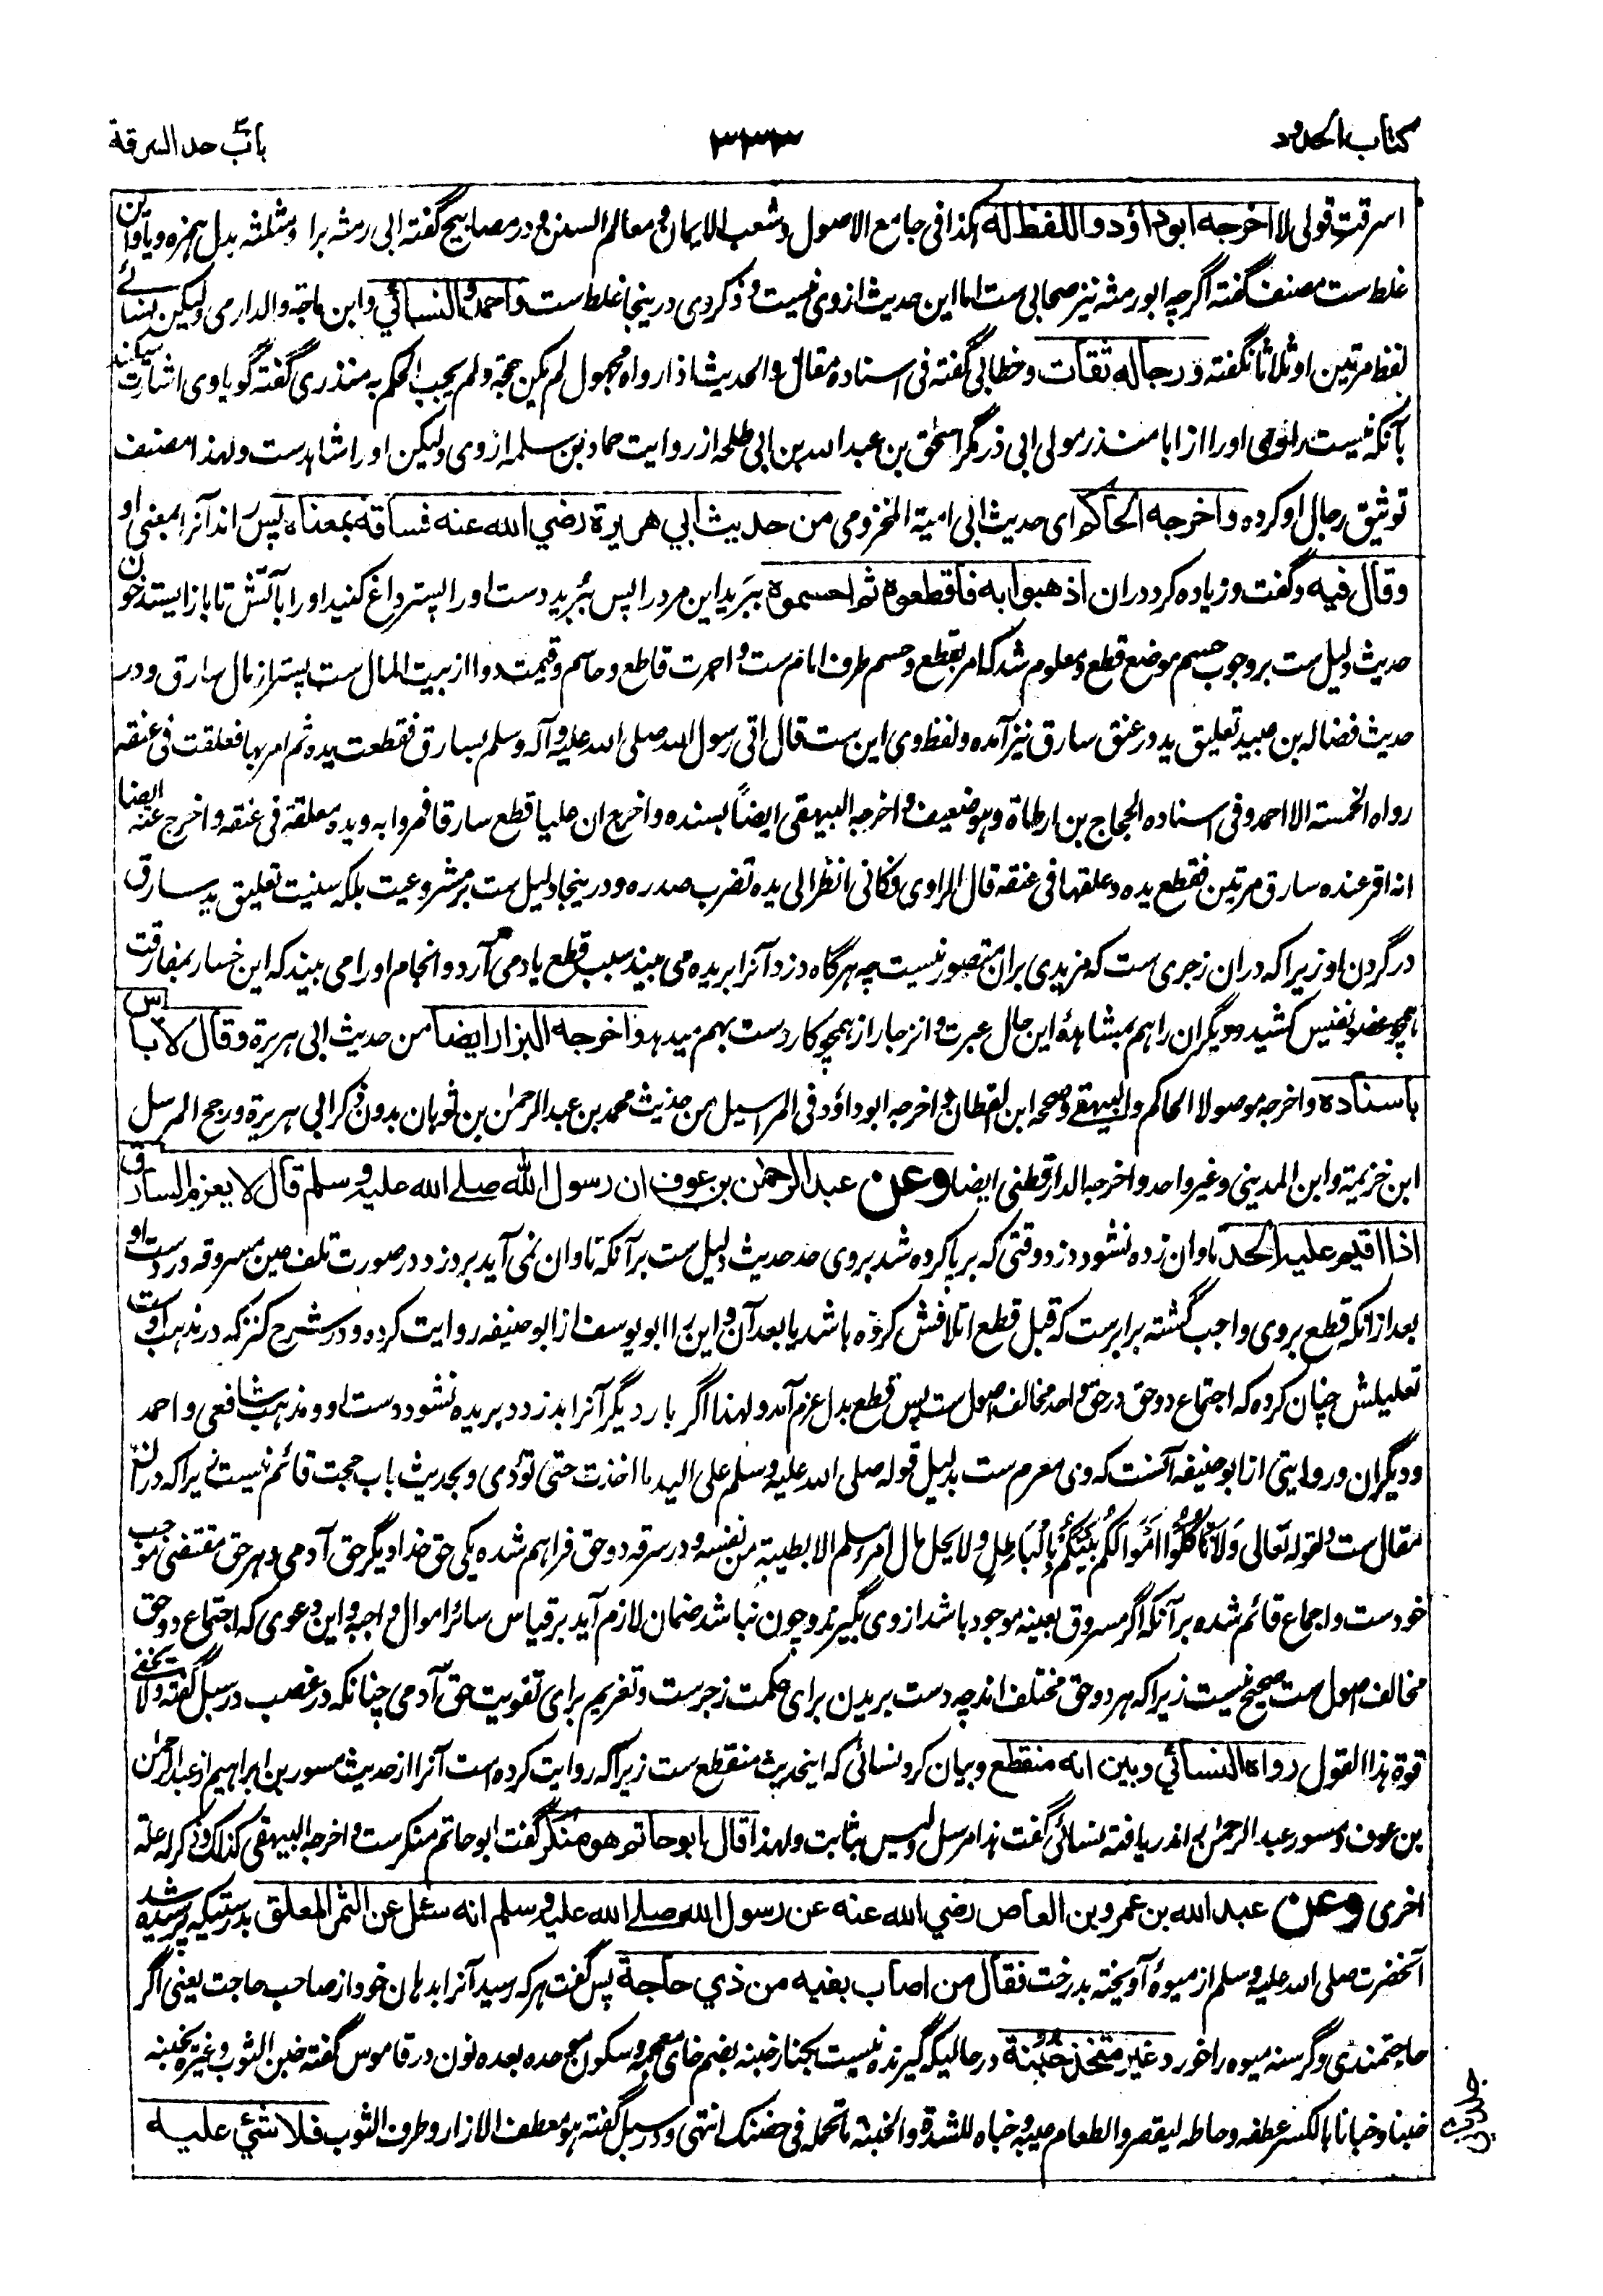 كتاب الحدود
باب حد السرقة
اسرقت قولى لا اخرجه ابو داؤد واللفظ له هكذا فى جامع الاصول وشعب الايمان و معالم السنن و در مصابيح گفته ابى رمثه برا و مثلثه بدل همزه و يا و اين
غلط ست مصنف گفته اگرچه ابو رمثه نيز صحابى ست اما اين حديث از وى نيست و ذكر وى درينجا غلط ست واحمد والنسائي وابن ماجة والدارمى وليكن نسائے
لفظ مرتين او ثلاثا نگفته ورجاله ثقات وخطابى گفته فى اسناده مقال والحديث اذا رواه مجهول لم يكن حجة ولم يجب الحكم به منذرى گفته گويا وى اشارت ميكند
بآنكه نيست راوى او را از ابا منذر مولى ابى ذر مگر اسحٰق بن عبد الله بن ابى طلحه از روايت حماد بن سلمه از وى وليكن او را شاهدست ولهذا مصنف
توثيق رجال او كرده واخرجه الحاكم اى حديث ابى امية المخزومى من حديث ابي هريرة رضي الله عنه فساقه بمعناه پس راند آنرا بمعنى او
وقال فيه وگفت و زياده كرد دران اذهبوا به فاقطعوه ثم احسموه ببريد اين مرد را پس ببريد دست او را پستر داغ كنيد او را بآتش تا باز ايستد خون
حديث دليل ست بر وجوب حسم موضع قطع و معلوم شد كه امر بقطع وحسم طرف امام ست و اجرت قاطع و حاسم و قيمت دوا از بيت المال ست پستر از مال سارق و در
حديث فضاله بن عبيد تعليق يد در عنق سارق نيز آمده و لفظ وى اين ست قال اتى رسول الله صلى الله عليه وآله وسلم بسارق فقطعت يده ثم امر بها فعلقت فى عنقه
رواه الخمسة الا احمد وفى اسناده الحجاج بن ارطاة وهو ضعيف و اخرجه البيهقى ايضاً بسنده واخرج ان عليا قطع سارقا فمروا به ويده معلقة فى عنقه واخرج عنه ايضا
انه اقر عنده سارق مرتين فقطع يده وعلقها فى عنقه قال الراوى فكانى انظر الى يده تضرب صدره و درينجا دليل ست بر مشروعيت بلكه سنيت تعليق يد سارق
در گردن او زيرا كه دران زجرى ست كه مزيدى بران متصور نيست چه هرگاه دزد آنرا بريده مى بيند سبب قطع ياد مى آرد و انجام او را مى بيند كه اين خسار بمفارقت
همچو عضو نفيس كشيد و ديگران را هم بمشاهدهٔ اين حال عبرت و انزجار از همچو كار دست بهم ميدهد واخرجه البزار ايضا من حديث ابى هريرة وقال لا باس
باسناده واخرجه موصولا الحاكم والبيهقے وصححه ابن القطان و اخرجه ابو داؤد فى المراسيل من حديث محمد بن عبد الرحمٰن بن ثوبان بدون ذكر ابى هريرة ورجح المرسل
ابن خزيمة وابن المدينى وغير واحد واخرجه الدارقطنى ايضا وعن عبد الرحمٰن بن عوف ان رسول الله صلے الله عليه وسلم قال لا يغرم السارق
اذا اقيم عليه الحد تاوان زده نشود دزد وقتى كه برپا كرده شد بروى حد حديث دليل ست برآنكه تاوان نمى آيد بر دزد در صورت تلف عين مسروقه در دست او
بعد ازانكه قطع بروى واجب گشته برابرست كه قبل قطع اتلافش كرده باشد يا بعد آن و اين را ابو يوسف از ابو حنيفه روايت كرده و در شرح كنز كه در مذهب اوست
تعليلش چنان كرده كه اجتماع دو حق در حق واحد مخالف اصول ست پس قطع بدل غرم آمد و لهذا اگر بار ديگر آنرا بدزدد بريده نشود دست او و مذهب شافعى و احمد
و ديگران و روايتى از ابو حنيفه آنست كه وى مغرم ست بدليل قوله صلى الله عليه وسلم على اليد ما اخذت حتى تؤدى و بحديث باب حجت قائم نيست زيرا كه دران
مقال ست و لقوله تعالى وَلَا تَأْكُلُوا أَمْوَالَكُم بَيْنَكُم بِالْبَاطِلِ ولا يحل مال امرء مسلم الا بطيبة من نفسه و در سرقه دو حق فراهم شده يكى حق خدا ديگر حق آدمى و هر حق مقتضى موجب
خودست و اجماع قائم شده برآنكه اگر مسروق بعينه موجود باشد از وى بگيرند و چون نباشد ضمان لازم آيد بر قياس سائر اموال واجبه و اين دعوى كه اجتماع دو حق
مخالف اصول ست صحيح نيست زيرا كه هر دو حق مختلف اند چه دست بريدن براى حكمت زجرست و تغريم براى تفويت حق آدمى چنانكه در غصب در سبل گفته ولا يخفے
قوة هذا القول رواه النسائي وبين انه منقطع و بيان كرد نسائى كه اينحديث منقطع ست زيرا كه روايت كرده است آنرا از حديث مسور بن ابراهيم از عبد الرحمٰن
بن عوف و مسور عبد الرحمٰن را در نيافته نسائى گفت هذا مرسل وليس بثابت ولهذا قال ابو حاتم هو منكر گفت ابو حاتم منكرست و اخرجه البيهقى كذلك وذكر له علة
اخرى وعن عبد الله بن عمرو بن العاص رضي الله عنه عن رسول الله صلے الله عليه وسلم انه سئل عن الثمر المعلق بدرستيكه پرسيده شد
آنحضرت صلى الله عليه وسلم از ميوهٔ آويخته بدرخت فقال من اصاب بفيه من ذي حاجة پس گفت هر كه رسيد آنرا بدهان خود از صاحب حاجت يعنى اگر
حاجتمندى و گرسنه ميوه را خورد غير متخذ خُبْنة در حاليكه گيرنده نيست بكنار خبنه بضم خاى معجمه و سكون موحده بعده نون در قاموس گفته خبن الثوب وغيره يخبنه
خبنا وخبانا بالكسر عطفه وخاطه ليقصر والطعام غيبه وخباه للشدة والخبنة ما تحمله فى حضنك انتهى و در سبل گفته هو معطف الازار وطرف الثوب فلا شئي عليه